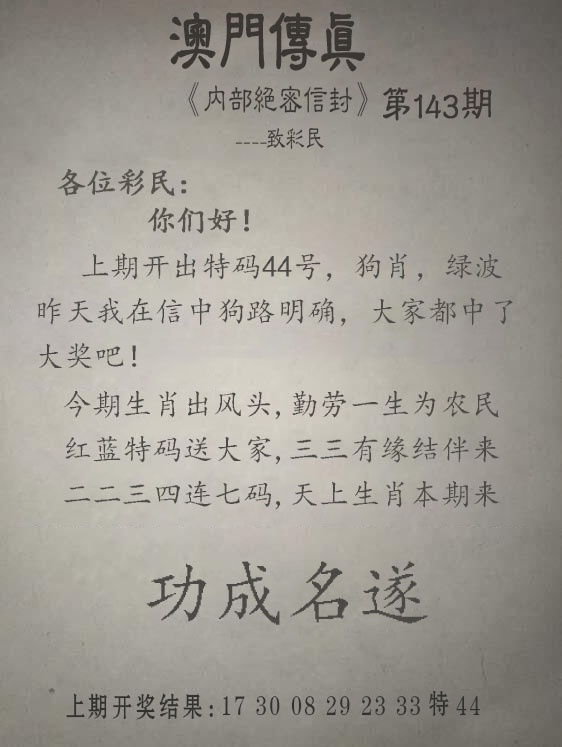 澳門傳真
《内部絕密信封》第143期
----致彩民
各位彩民：
你们好！
上期开出特码44号，狗肖，绿波
昨天我在信中狗路明确，大家都中了
大奖吧！
今期生肖出风头,勤劳一生为农民
红蓝特码送大家,三三有缘结伴来
二二三四连七码,天上生肖本期来
功成名遂
上期开奖结果:17 30 08 29 23 33 特 44